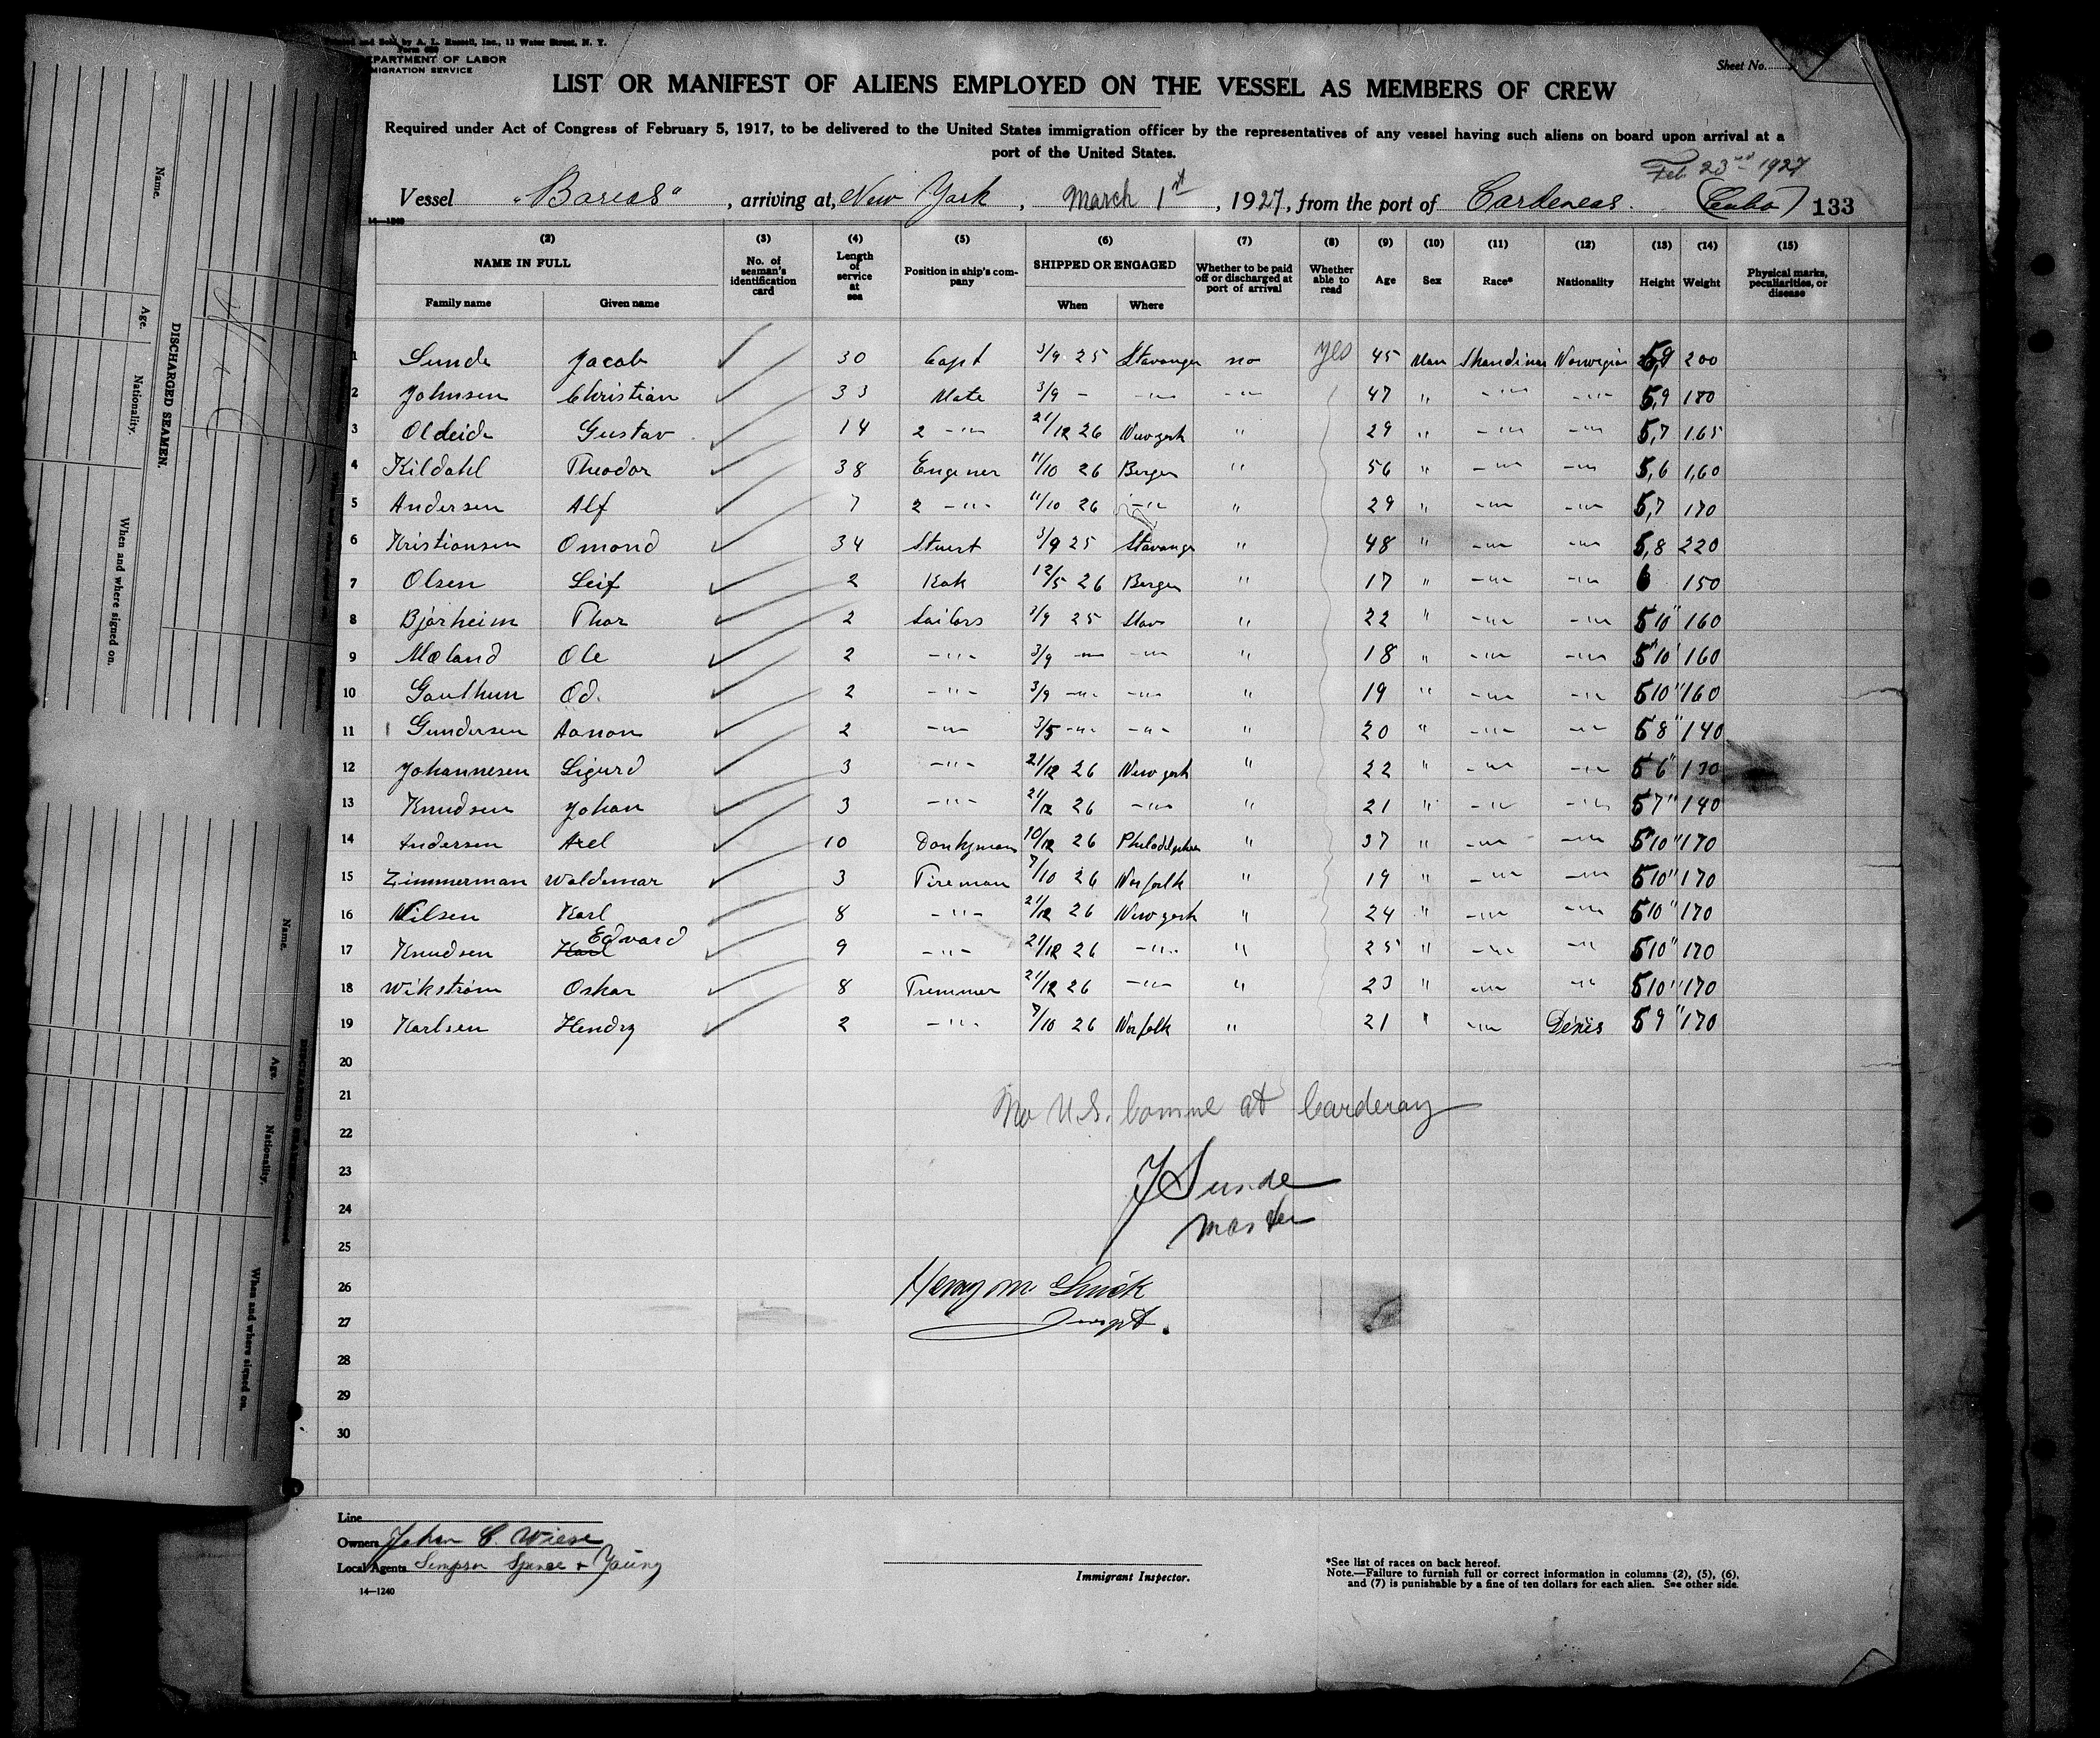 and Sold by A. L. Russell, Inc., 11 Water Street, N. Y.
DEPARTMENT OF LABOR
IMMIGRATION SERVICE
Sheet No.
LIST OR MANIFEST OF ALIENS EMPLOYED ON THE VESSEL AS MEMBERS OF CREW
Required under Act of Congress of February 5, 1917, to be delivered to the United States immigration officer by the representatives of any vessel having such aliens on board upon arrival at a
port of the United States.
Feb. 23rd 1927
Vessel "Boreas", arriving at, New York, March 1st, 1927, from the port of Cardeneas. (Cuba) 133
14—1240
(2) (3) (4) (5) (6) (7) (8) (9) (10) (11) (12) (13) (14) (15)
NAME IN FULL Family name Given name No. of seaman's identification card Length of service at sea Position in ship's company SHIPPED OR ENGAGED When Where Whether to be paid off or discharged at port of arrival Whether able to read Age Sex Race* Nationality Height Weight Physical marks, peculiarities, or disease
1 Sunde Jacob 30 Capt 3/9 25 Stavanger no yes 45 Man Skandinav Norwegian 5,9 200
2 Johnsen Christian 33 Mate 3/9 - -"- -"- 47 " -"- -"- 5,9 180
3 Oldeide Gustav 14 2 -"- 21/12 26 New york " 29 " -"- -"- 5,7 165
4 Kildahl Theodor 38 Enginer 11/10 26 Bergen " 56 " -"- -"- 5,6 1,60
5 Andersen Alf 7 2 -"- 11/10 26 -"- " 29 " -"- -"- 5,7 170
6 Kristiansen Omond 34 Stuert 3/9 25 Stavange " 48 " -"- -"- 5,8 220
7 Olsen Leif 2 Kok 12/5 26 Bergen " 17 " -"- -"- 6 150
8 Bjørheim Thor 2 Sailors 3/9 25 Stav " 22 " -"- -"- 5 10" 160
9 Mæland Ole 2 -"- 3/9 -"- -"- " 18 " -"- -"- 5 10" 160
10 Gauthun Od. 2 -"- 3/9 -"- -"- " 19 " -"- -"- 5 10" 160
11 Gundersen Aanon 2 -"- 3/5 -"- -"- " 20 " -"- -"- 5 8" 140
12 Johannesen Sigurd 3 -"- 21/12 26 New york " 22 " -"- -"- 5 6" 130
13 Knudsen Johan 3 -"- 21/12 26 -"- " 21 " -"- -"- 5 7" 140
14 Andersen Axel 10 Donkyman 10/12 26 Philadelphia " 37 " -"- -"- 5 10" 170
15 Zimmerman Waldemar 3 Fireman 7/10 26 Norfolk " 19 " -"- -"- 5 10" 170
16 Nilsen Karl 8 -"- 21/12 26 New york " 24 " -"- -"- 5 10" 170
17 Knudsen Karl Edvard 9 -"- 21/12 26 -"- " 25 " -"- -"- 5 10" 170
18 Wikstrøm Oskar 8 Tremmer 21/12 26 -"- " 23 " -"- -"- 5 10" 170
19 Karlsen Hendry 2 -"- 7/10 26 Norfolk " 21 " -"- Denis 5 9" 170
20
21 No U.S. at
22
23 J Sunde
24 master
25
26 Henry M.
27 Inspt.
28
29
30
Line
Owners Johan C. Wiese
Local Agents Simpson Spence + Young
14—1240
Immigrant Inspector.
*See list of races on back hereof.
Note.—Failure to furnish full or correct information in columns (2), (5), (6),
and (7) is punishable by a fine of ten dollars for each alien. See other side.
DISCHARGED SEAMEN.
Name. Age. Nationality. When and where signed on.
Name. Age. Nationality. When and where signed on.